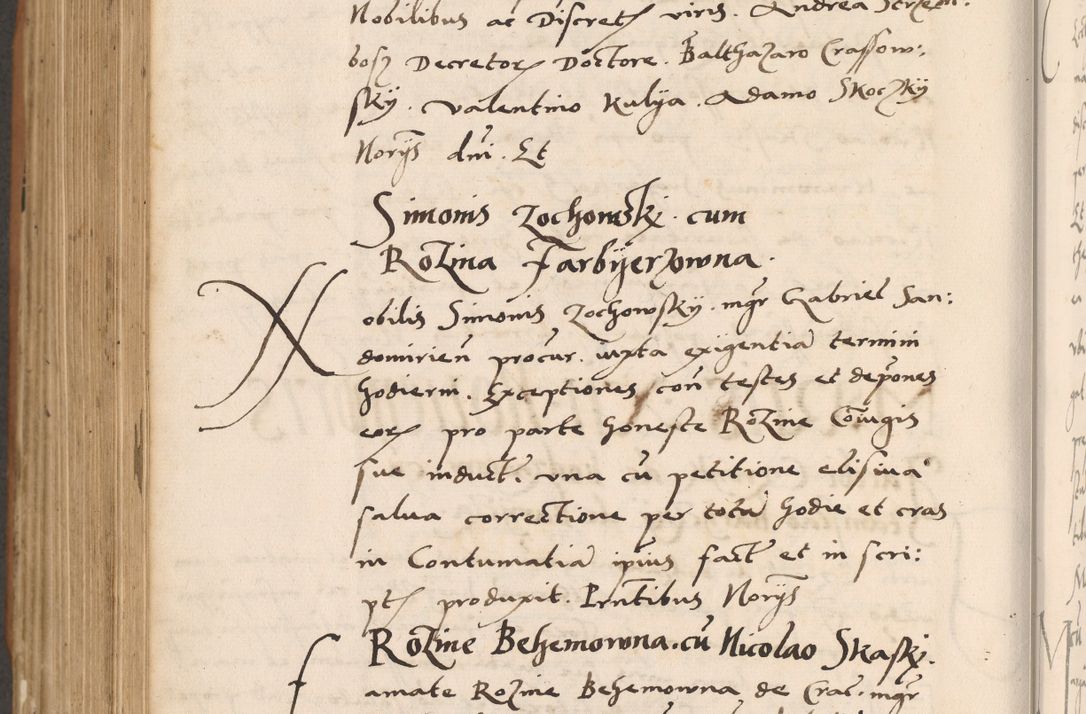 Nobilibus ac Discret viris. Andrea Strzem:
bosz Decretor Doctore. Balthazaro Crassow:
sky. Valentino Kulya. Adamo Skoczky
Norijs dni. Et
Simonis Zochowski. cum
Rozina Farbyerzowna.
Nobilis Simonis Zochowsky. mgr Gabriel San:
domirien procur. iuxta exigentia termini
hodierni. Exceptiones con testes et depones
eor pro parte honeste Rozine Coniugis
sue induct. vna cu petitione elisiua
salua correctione per totu hodie et cras
in Contumatia ipius fact et in scri:
pt produxit. Pntibus Norijs
Rozine Behemowna. cu Nicolao Skaski.
famate Rozine Behemowna de Crac. mgr